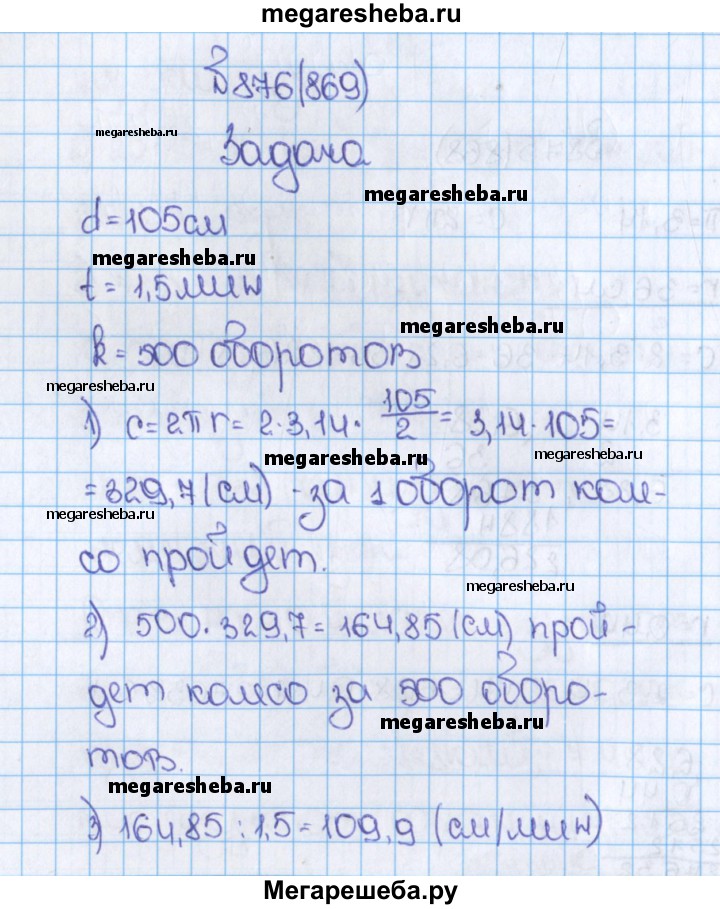 megaresheba.ru
№876(869)
megaresheba.ru
Задача
megaresheba.ru
d=105см
megaresheba.ru
t=1,5мин
megaresheba.ru
k=500 оборотов
megaresheba.ru
1) c=2πr=2·3,14·105/2=3,14·105=
megaresheba.ru
megaresheba.ru
=329,7(см) -за 1 оборот коле-
megaresheba.ru
со пройдет.
megaresheba.ru
2) 500·329,7=164,85(см) прой-
дет колесо за 500 оборо-
megaresheba.ru
тов.
megaresheba.ru
3) 164,85:1,5=109,9 (см/мин)
Мегарешеба.ру